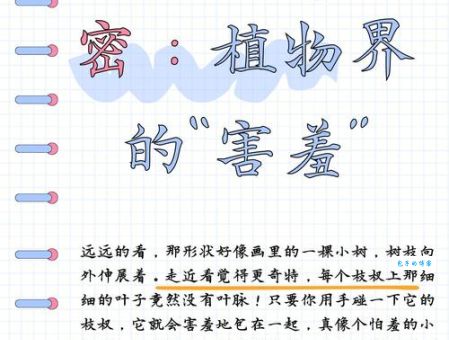 密：植物界
的“害羞”
远远的看，那形状好像画里的一棵小树，树枝向
外伸展着。走近看觉得更奇特，每个枝杈上那细
细的叶子竟然没有叶脉！只要你用手碰一下它的
枝杈，它就会害羞地包在一起，真像个怕羞的小